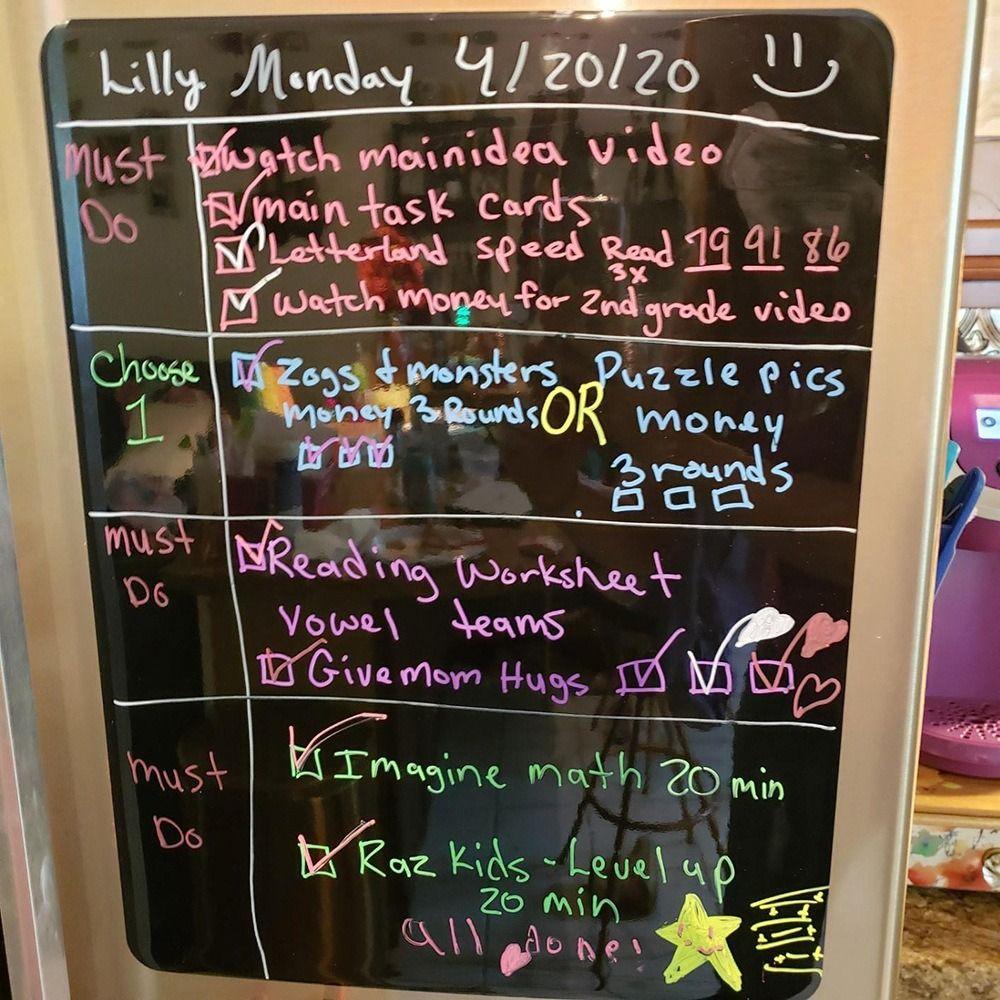 Lilly Monday 4/20/20
Must Do
Watch mainidea video
main task cards
Letterland Speed Read 79 91 86
3x
Watch Money for 2nd grade video
Choose 1
Zogs & monsters
money 3 Rounds
OR
Puzzle pics
money
3 rounds
must Do
Reading Worksheet
Vowel teams
Give mom Hugs
must Do
Imagine math 20 min
Raz Kids - Level up
20 min
all done!